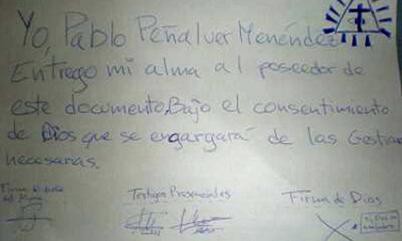 Yo, Pablo Peñalver Menéndez
Entrego mi alma al poseedor de
este documento, Bajo el consentimiento
de Dios que se engargará de las Gestiones
necesarias.
Testigos Presenciales
Firma de Dios